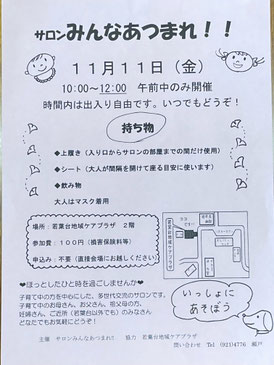 サロンみんなあつまれ！！
１１月１１日（金）
10:00～12:00 午前中のみ開催
時間内は出入り自由です。いつでもどうぞ！
持ち物
◆上履き（入り口からサロンの部屋までの間だけ使用）
◆シート（大人が間隔を開けて座る目安に使います）
◆飲み物
大人はマスク着用
場所：若葉台地域ケアプラザ ２階
参加費：１００円（損害保険料等）
申込み：不要（直接会場にお越しください）
❤ほっとしたひと時を過ごしませんか❤
子育て中の方を中心にした、多世代交流のサロンです。
子育て中のお母さん、お父さん、祖父母の方、
妊婦さん、ご近所（若葉台以外でも）のみなさん
どなたでもお気軽にどうぞ！
いっしょに
あそぼう
主催 サロンみんなあつまれ！ 協力 若葉台地域ケアプラザ
問い合わせ Tel (921)4776